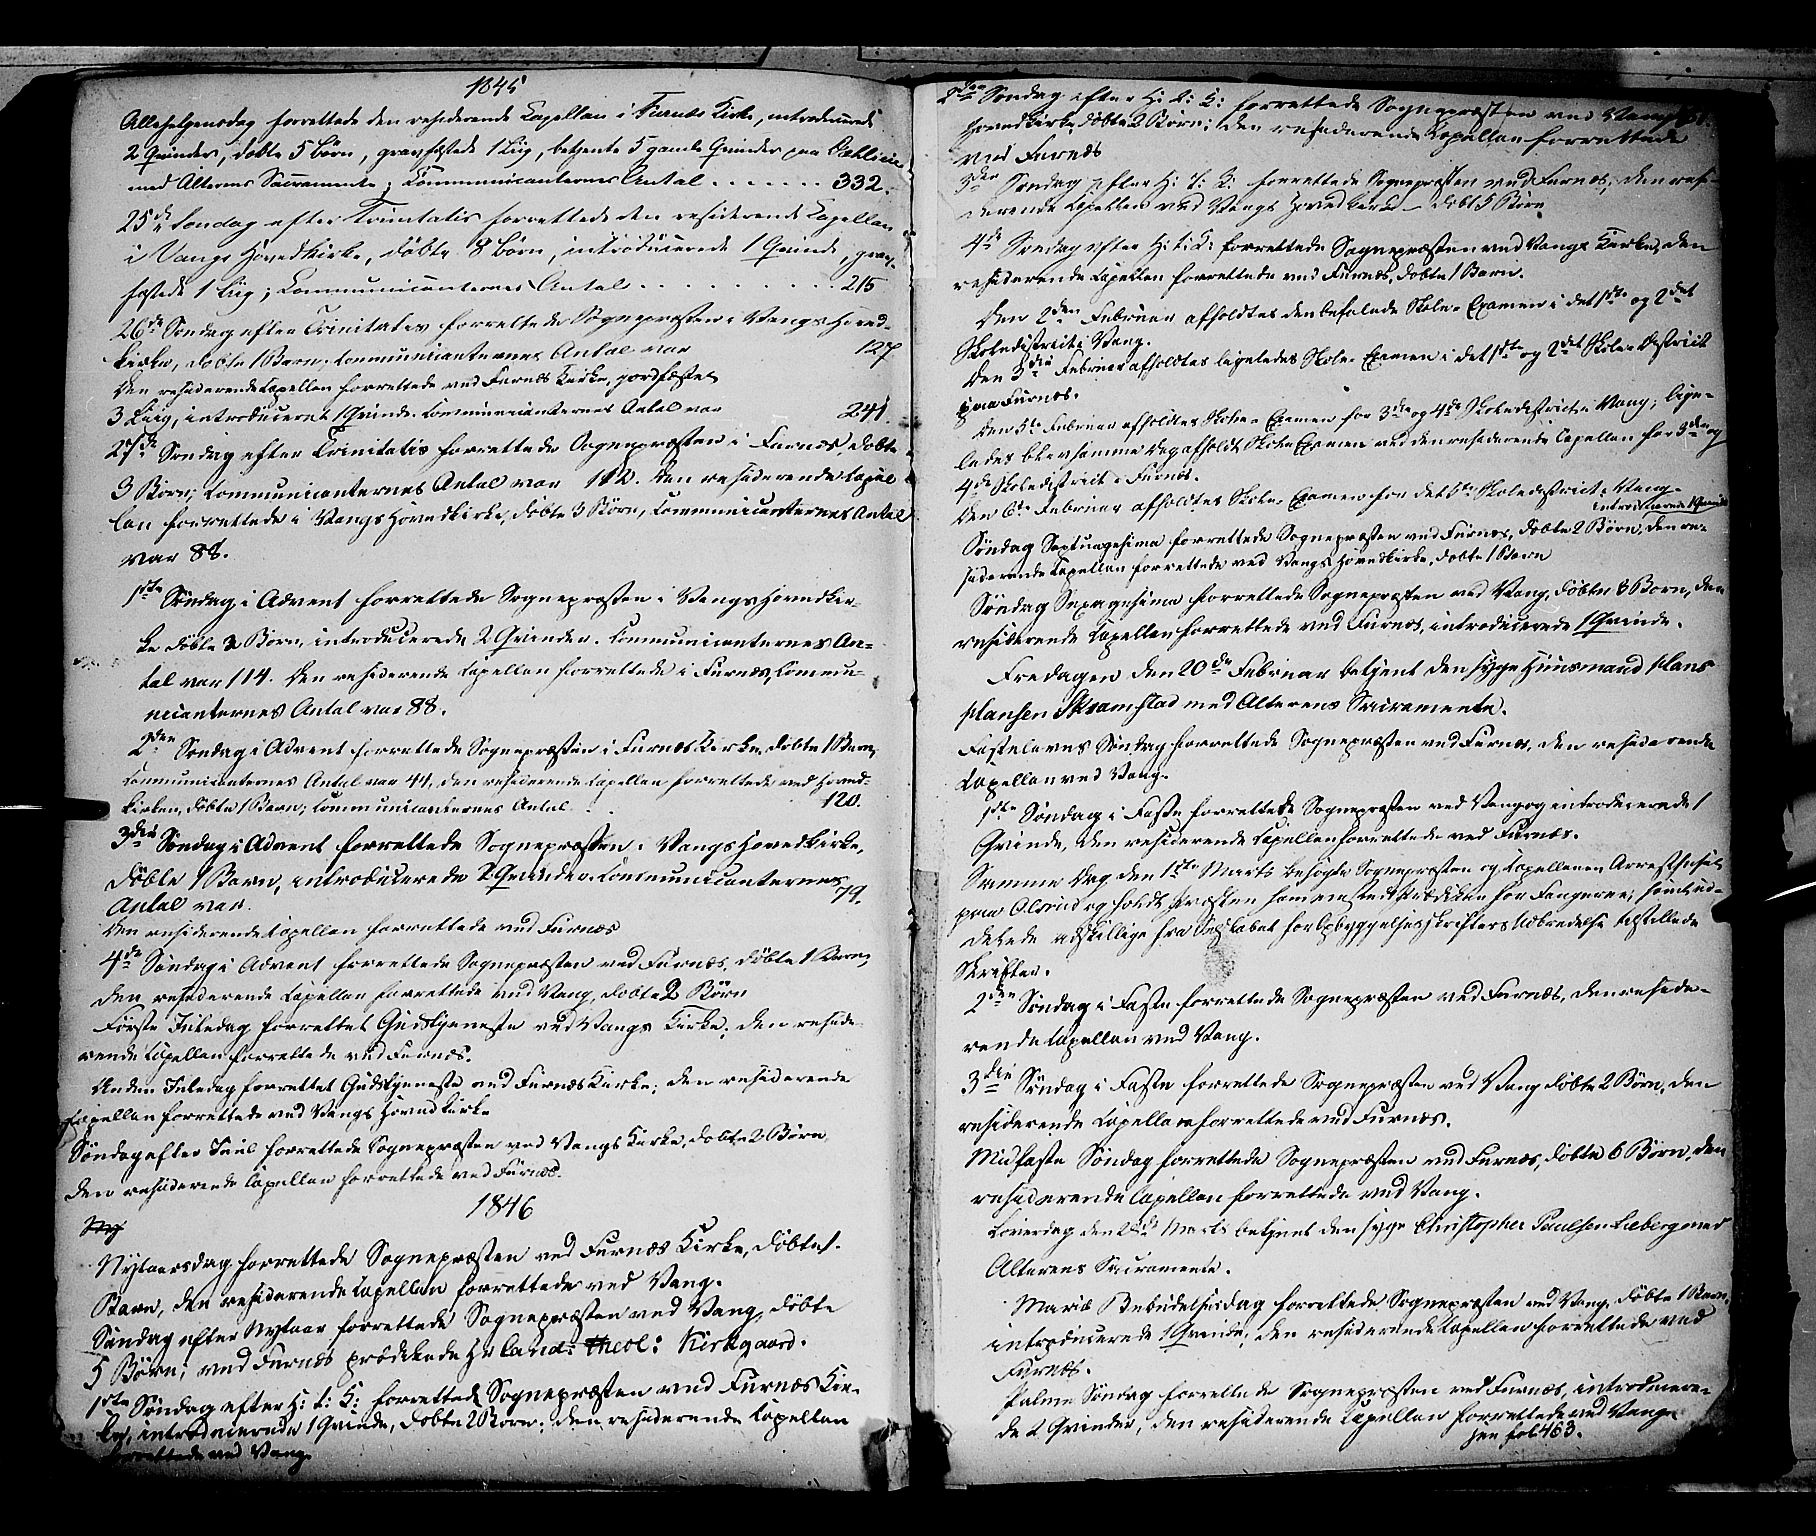 1845
Allehelgensdag forrettede den residerende Capellan i Furnæs Kirke, introducerede
2 Qvinder, døbte 5 Børn, gravfæstede 1 Liig, betjente 5 gamle Qvinder paa
med Alterens Sacramente; Communicanternes Antal . . . . . . . 332.
25de Søndag efter Trinitatis forrettede den residerende Capellan
i Vangs Hovedkirke, døbte 8 Børn, introducerede 1 Qvinde, grav-
fæstede 1 Liig; Communicanternes Antal . . . . . . . . . . 215
26de Søndag efter Trinitatis forrettede Sognepræsten i Vangs Hoved-
kirke, døbte 1 Barn; Communicanternes Antal var 127
Den residerende Capellan forrettede ved Furnæs Kirke, jordfæstet
3 Liig, introduceret 1 Qvinde. Communicanternes Antal var 241.
27de Søndag efter Trinitatis forrettede Sognepræsten i Furnæs, døbte
3 Børn; Communicanternes Antal var 112. Den residerende Capel-
lan forrettede i Vangs Hovedkirke, døbte 3 Børn, Communicanternes Antal
var 88.
1ste Søndag i Advent forrettede Sognepræsten i Vangs Hovedkir-
ke døbte 3 Børn, introducerede 2 Qvinder. Communicanternes An-
tal var 114. Den residerende Capellan forrettede i Furnæs, Commu-
nicanternes Antal var 88.
2den Søndag i Advent forrettede Sognepræsten i Furnæs Kirke, døbte 1 Barn,
Communicanternes Antal var 44, den residerende Capellan forrettede ved Hoved-
kirken, døbte 1 Barn; Communicanternes Antal . . 120.
3die Søndag i Advent forrettede Sognepræsten i Vangs Hovedkirke,
døbte 1 Barn, introducerede 2 Qvinder. Communicanternes
Antal var. 79.
Den residerende Capellan forrettede ved Furnæs
4de Søndag i Advent forrettede Sognepræsten ved Furnæs, døbte 1 Barn,
den residerende Capellan forrettede ved Vang, døbte 2 Børn
Første Juledag forrettet Gudstjeneste ved Vangs Kirke; den reside-
rende Capellan forrettede ved Furnæs.
Anden Juledag forrettet Gudstjeneste ved Furnæs Kirke; den residerende
Capellan forrettede ved Vangs Hovedkirke
Søndag efter Juul forrettede Sognepræsten ved Vangs Kirke, døbte 2 Børn,
den residerende Capellan forrettede ved Furnæs.
1846
Ny
Nytaarsdag forrettede Sognepræsten ved Furnæs Kirke, døbte 1.
Barn, den residerende Capellan forrettede ved Vang.
Søndag efter Nytaar forrettede Sognepræsten ved Vang, døbte
5 Børn; ved Furnæs prædikede Hr Cand: theol: Kirkgaard.
1ste Søndag efter H: t: K: forrettede Sognepræsten ved Furnæs Kir-
ke, introducerede 1 Qvinde, døbte 2 Børn; den residerende Capellan
forrettede ved Vang.
2den Søndag efter H: t: K: forrettede Sognepræsten ved Vangs
Hovedkirke, døbte 2 Børn; den residerende Capellan forrettede
ved Furnæs
3die Søndag efter H: t: K: forrettede Sognepræsten ved Furnæs, den resi-
derende Capellan ved Vangs Hovedkirke - døbt 5 Børn
4de Søndag efter H: t: K: forrettede Sognepræsten ved Vangs Kirke, den
residerende Capellan forrettede ved Furnæs, døbte 1 Barn.
Den 2den Februar afholdtes den befalede Skole-Examen i det 1ste og 2det
Skoledistrict i Vang.
Den 3die Februar afholdtes ligeledes Skole-Examen i det 1ste og 2det Skole-District
paa Furnæs.
Den 5te Februar afholdtes Skole-Examen for 3die og 4de Skoledistrict i Vang; lige-
ledes blev samme Dag afholdt Skole Examen ved den residerende Capellan for 3die og
4de Skoledistrict i Furnæs.
Den 6te Februar afholdtes Skole-Examen for det 5te Skoledistrict i Vang.
introducerede 1 Qvinde
Søndag Septuagesima forrettede Sognepræsten ved Furnæs, døbte 2 Børn, den re-
siderende Capellan forrettede ved Vangs Hovedkirke, døbte 1 Barn
Søndag Sexagesima forrettede Sognepræsten ved Vang, døbte 8 Børn, den
residerende Capellan forrettede ved Furnæs, introducerede 1 Qvinde.
Fredagen den 20de Februar betjent den syge Huusmand Hans
Hansen Skramstad med Alterens Sacramente.
Fastelavns Søndag forrettede Sognepræsten ved Furnæs, den residerende
Capellan ved Vang.
1ste Søndag i Faste forrettede Sognepræsten ved Vang og introducerede 1
Qvinde, den residerende Capellan forrettede ved Furnæs.
Samme Dag den 1ste Marts besøgte Sognepræsten og Capellanen Arresthuset
paa og holdt Præsten sammesteds Prædiken for Fangerne; samt ud-
delede adskillige fra Selskabet for Opbyggelsesskrifters Udbredelse tilstillede
Skrifter.
2den Søndag i Faste forrettede Sognepræsten ved Furnæs, den reside-
rende Capellan ved Vang.
3die Søndag i Faste forrettede Sognepræsten ved Vang døbte 2 Børn, den
residerende Capellan forrettede ved Furnæs.
Midfaste Søndag forrettede Sognepræsten ved Furnæs, døbte 6 Børn, den
residerende Capellan forrettede ved Vang.
Løverdag den Marts betjent den syge Christopher Paulsen Lieberg med
Alterens Sacramente.
Mariæ Bebudelsesdag forrettede Sognepræsten ved Vang, døbte 1 Barn,
introducerede 1 Qvinde, den residerende Capellan forrettede ved
Furnæs.
Palme Søndag forrettede Sognepræsten ved Furnæs, introducere-
de 2 Qvinder, den residerende Capellan forrettede ved Vang
see fol 463.